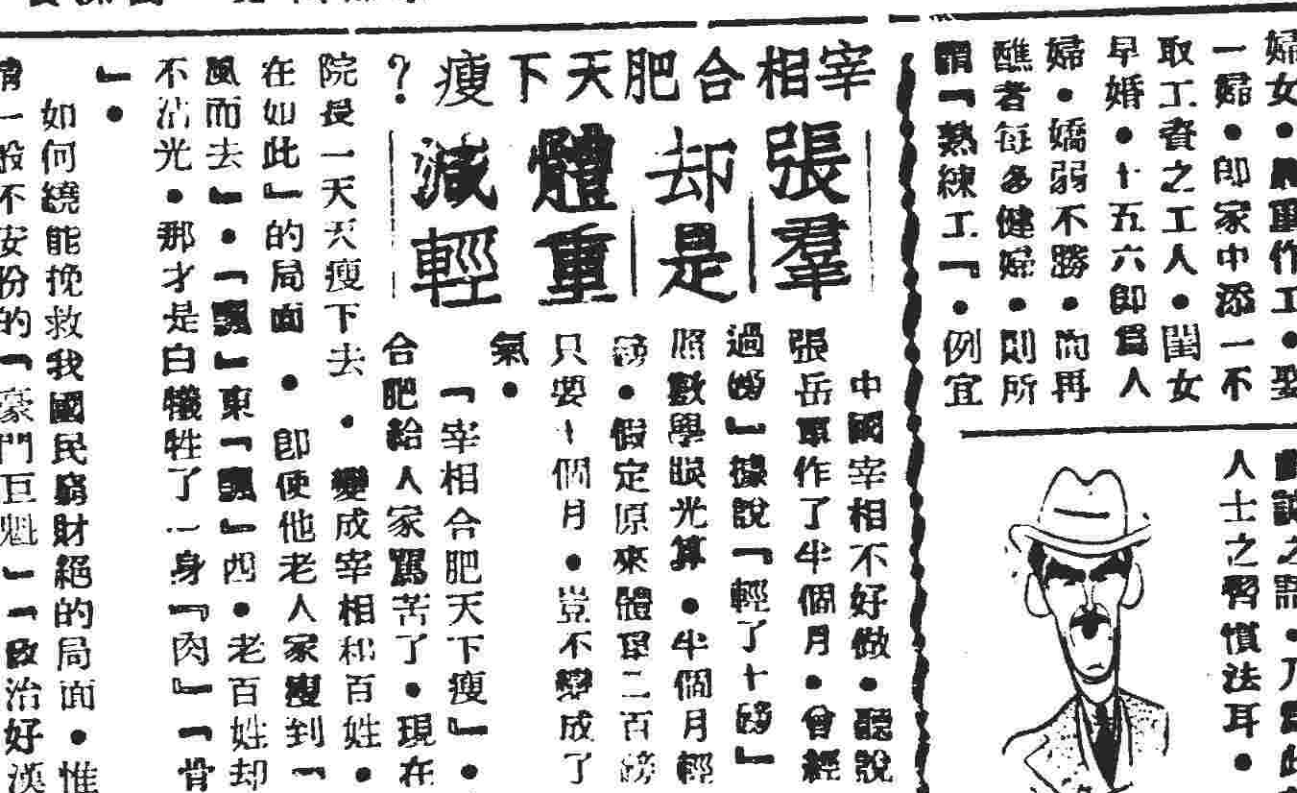 婦女・
一婦・即家中添一不
取工資之工人・閨女
早婚・十五六即爲人
婦・嬌弱不勝・而再
醮者每多健婦・則所
謂『熟練工』・例宜
人士之習慣法耳・
宰相合肥天下瘦?
張羣
却是
體重
減輕
中國宰相不好做・聽說
張岳軍作了半個月・曾經
過磅』據說『輕了十磅』
照數學眼光算・半個月輕
磅・假定原來體重二百磅
只要十個月・豈不變成了
氣・
『宰相合肥天下瘦』・
合肥給人家罵苦了・現在
院長一天天瘦下去・變成宰相和百姓・
在如此』的局面・即使他老人家瘦到『
風而去』・『飄』東『飄』西・老百姓却
不沾光・那才是白犧牲了一身『肉』『骨
』・
如何纔能挽救我國民窮財絕的局面・惟
一般不安份的『豪門巨魁』『政治好漢